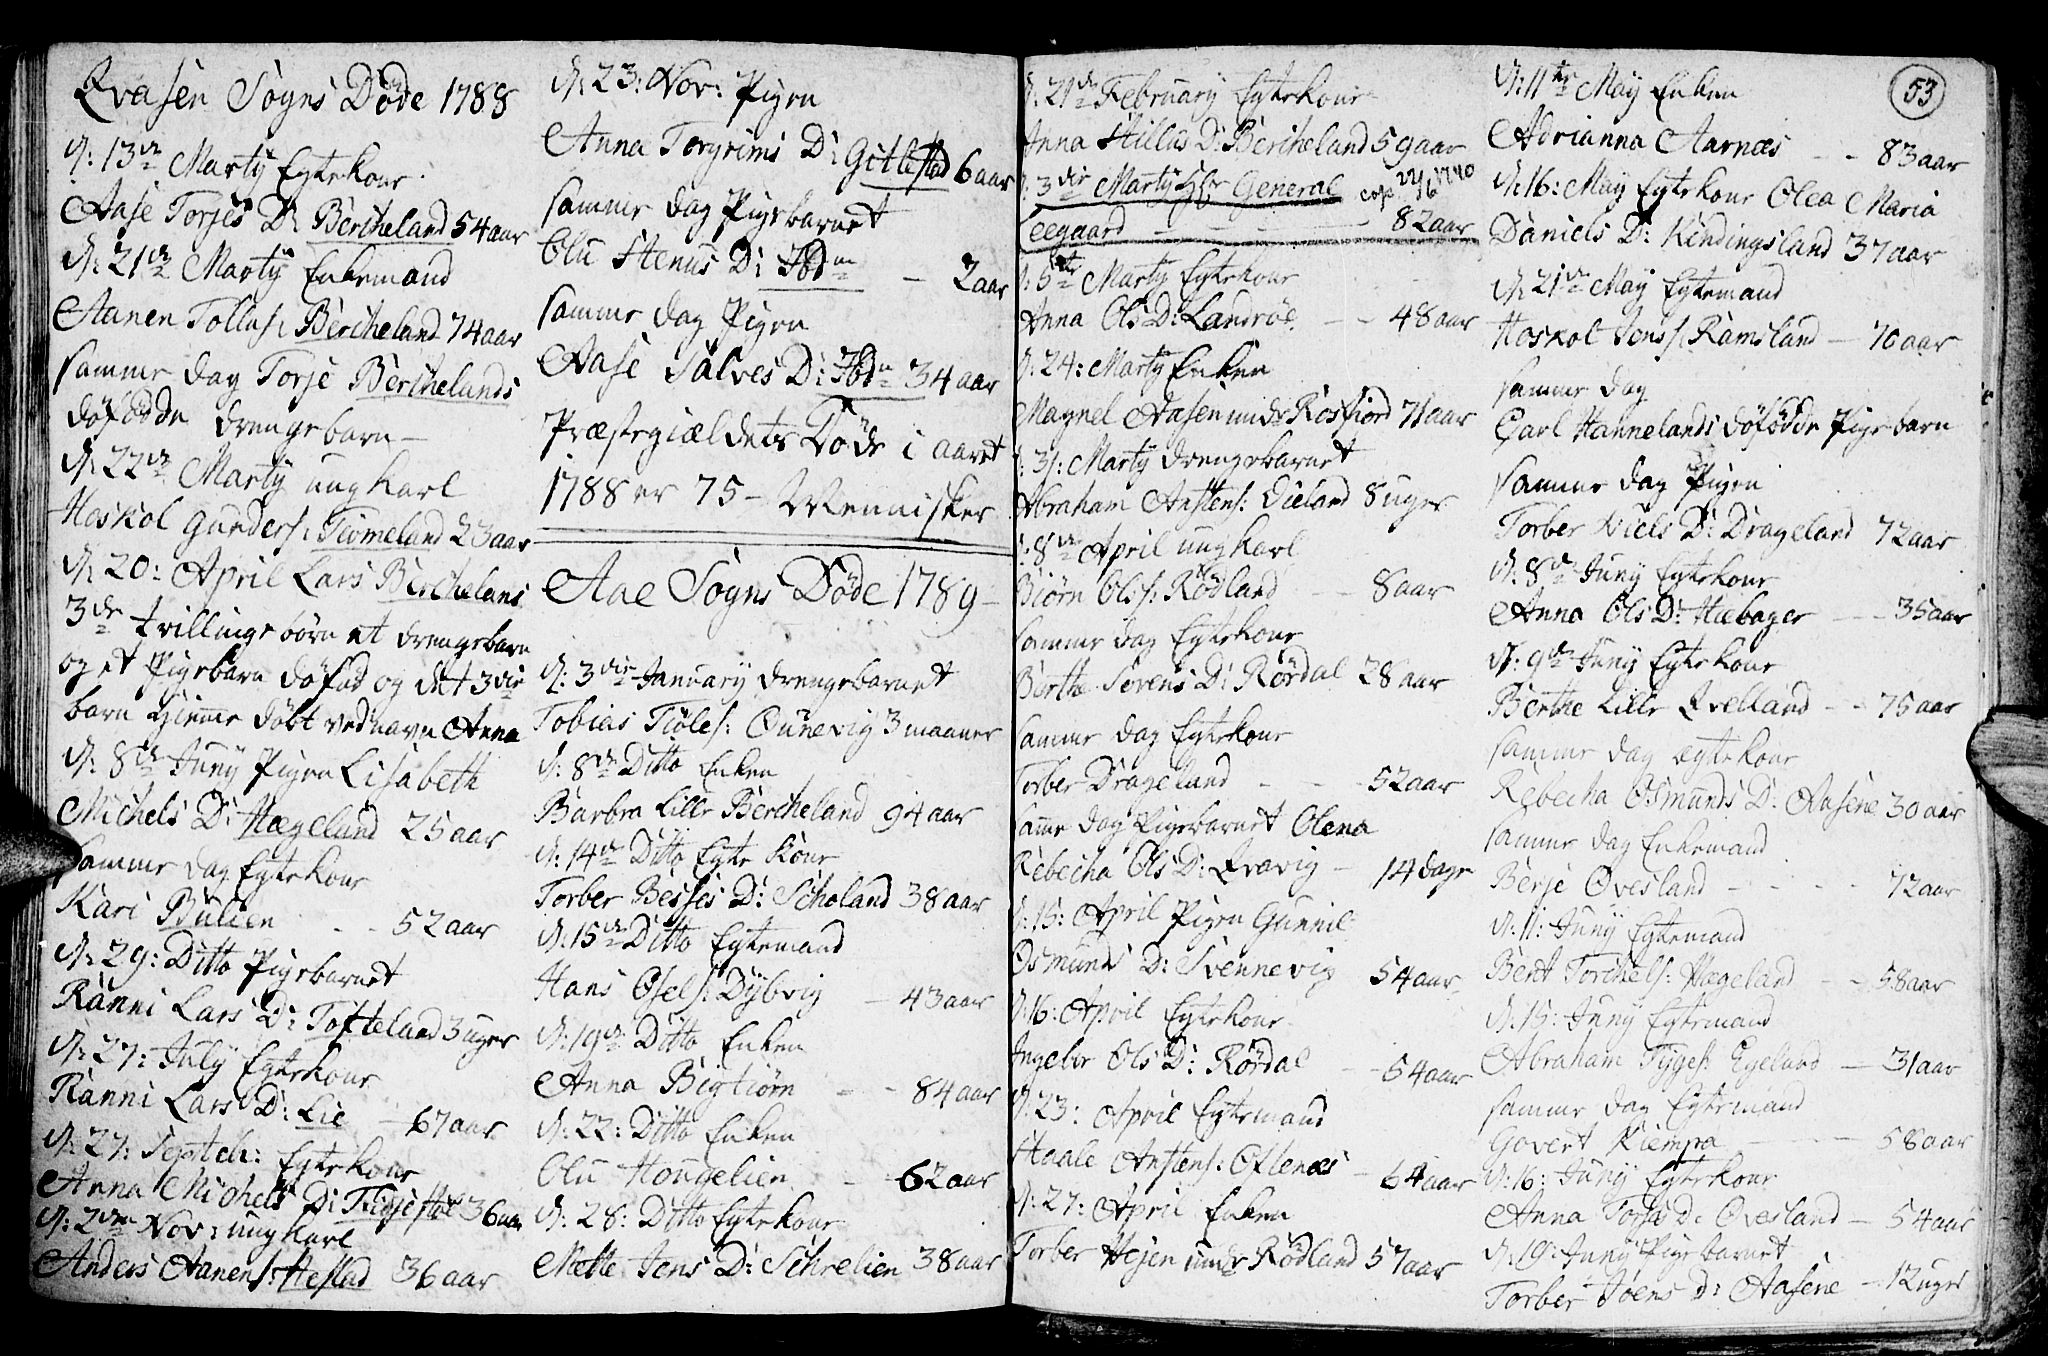 Qvasen Sogns Döde 1788
d: 13de Marty Egtekone
Aase Torjes D: Bercheland 54 aar
d: 21de Marty Enkemand
Aanen Tollufs: Bercheland 74 aar
samme dag Torje Berchelands
döfödde drengebarn
d: 22de Marty ungkarl
Hoskol Gunders: Tiomeland 23 aar
d: 20: April Lars Berchelans
3de trillinge börn et drengebarn
og et Pigebarn döfød og det 3die
barn hjemme döbt ved navn Anna
d: 8de Juny Pigen Lisabeth
Michels D: Hægeland 25 aar
samme dag Egtekone
Kari Bulien - - 52 aar
d: 29: Ditto Pigebarnet
Ranni Lars D: Tofteland 3 uger
d: 27: July Egtekone
Ranni Lars D: Lie - 67 aar
d: 27: Septeb: Egtekone
Anna Michels D: 36 aar
d: 2den Nov: ungkarl
Anders Aanens: Hestad 36 aar
d: 23: Nov: Pigen
Anna Torgrims D: Gitlestad 6 aar
samme dag Pigebarnet
Olu Stenus D: Ibdm - 2 aar
samme dag Pigen
Aase Salves D: Ibdm 34 aar
Præstegieldets Döde i aaret
1788 er 75 - Mennisker
Aae Sogns Döde 1789 -
d: 3die January drengebarnet
Tobias Tiöls: Ounevig 3 maaner
d: 8de Ditto Enken
Barbra Lille Bercheland 94 aar
d: 14de Ditto Egte Kone
Torber Besses D: Scholand 38 aar
d: 15de Ditto Egtemand
Hans Osels: Dybvig - 43 aar
d: 19de Ditto Enken
Anna Bigtiörn - - 84 aar
d: 22: Ditto Enken
Olu Hougelien - - 62 aar
d: 28: Ditto Egtekone
Mette Jens D: Schrelien 38 aar
d: 21de February Egtekone
Anna Stillus D: Bercheland 59 aar
d: 3die Marty Hr General cop 22/6 1740
eegaard - - - - 82 aar
d: 5te Marty Egtekone
Anna Ols D: Landröe - - 48 aar
d: 24: Marty Enken
Magnel Aasen unde Rosfiord 71 aar
d: 31: Marty drengebarnet
Abraham Anstens: Øieland 8 uger
d: 8de April ungkarl
Biörn Ols s: Rödland - - 8 aar
samme dag Egtekone
Berthe Sørens D: Rördal 28 aar
samme dag Egtekone
Torber Drageland - - 52 aar
samme dag Pigebarnet Olena
Rebecha Ols D: Qvavig - 14 dage
d: 15: April Pigen Gunnil
Osmunds D: Svennevig 54 aar
d: 16: April Egtekone
Ingebor Ols D: Rördal - 54 aar
d: 23: April Egtemand
Staale Anstens: Oftenæs - 64 aar
d: 27: April Enken
Torber Hejen unde Rödland 57 aar
53
d: 11te May Enken
Adrianna Aarnæs - - 83 aar
d: 16: May Egtekone Olea Maria
Daniels D: Kendingsland 37 aar
d: 21de May Egtemand
Hoskol Jens s: Ramsland - 70 aar
samme dag
Carl Hannelands döfödde Pigebarn
samme dag Pigen
Torber Niels D: Drageland 72 aar
d: 8de Juny Egtekone
Anna Ols D: Hæbager - - 35 aar
d: 9de Juny Egtekone
Berthe Lille Qvelland - - 75 aar
samme dag ægtekone
Rebecha Osmunds D: Aasene 30 aar
samme dag Enkemand
Berje Øvesland - - - - 72 aar
d: 11: Juny Egtemand
Bent Torchels: Hægeland - - 58 aar
d: 15: Juny Egtemand
Abraham Tyges: Egeland - 31 aar
samme dag Egtemand
Govert Kiempa - - - 58 aar
d: 16: Juny Egtekone
Anna Torje D: Øvesland - 54 aar
d: 19: Juny Pigebarnet
Torber Joens D: Aasene - 12 uger